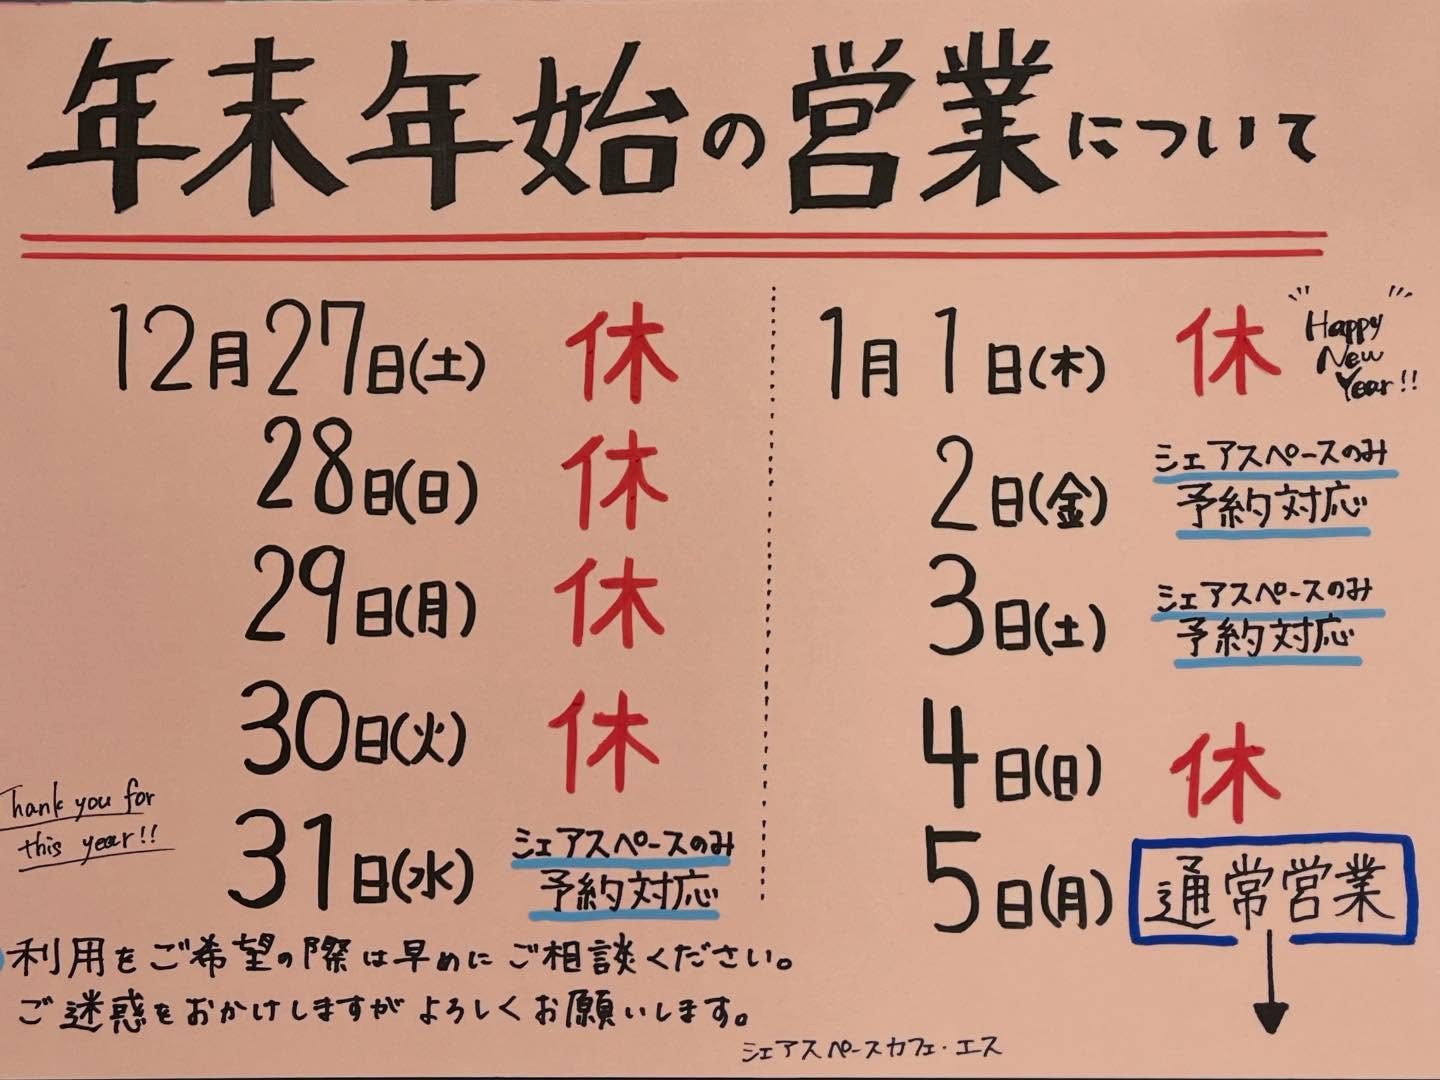 年末年始の営業について
12月27日(土) 休
28日(日) 休
29日(月) 休
30日(火) 休
31日(水) シェアスペースのみ
予約対応
Thank you for
this year!!
1月1日(木) 休
Happy
New
Year!!
2日(金) シェアスペースのみ
予約対応
3日(土) シェアスペースのみ
予約対応
4日(日) 休
5日(月) 通常営業
利用をご希望の際は早めにご相談ください。
ご迷惑をおかけしますがよろしくお願いします。
シェアスペースカフェ・エス